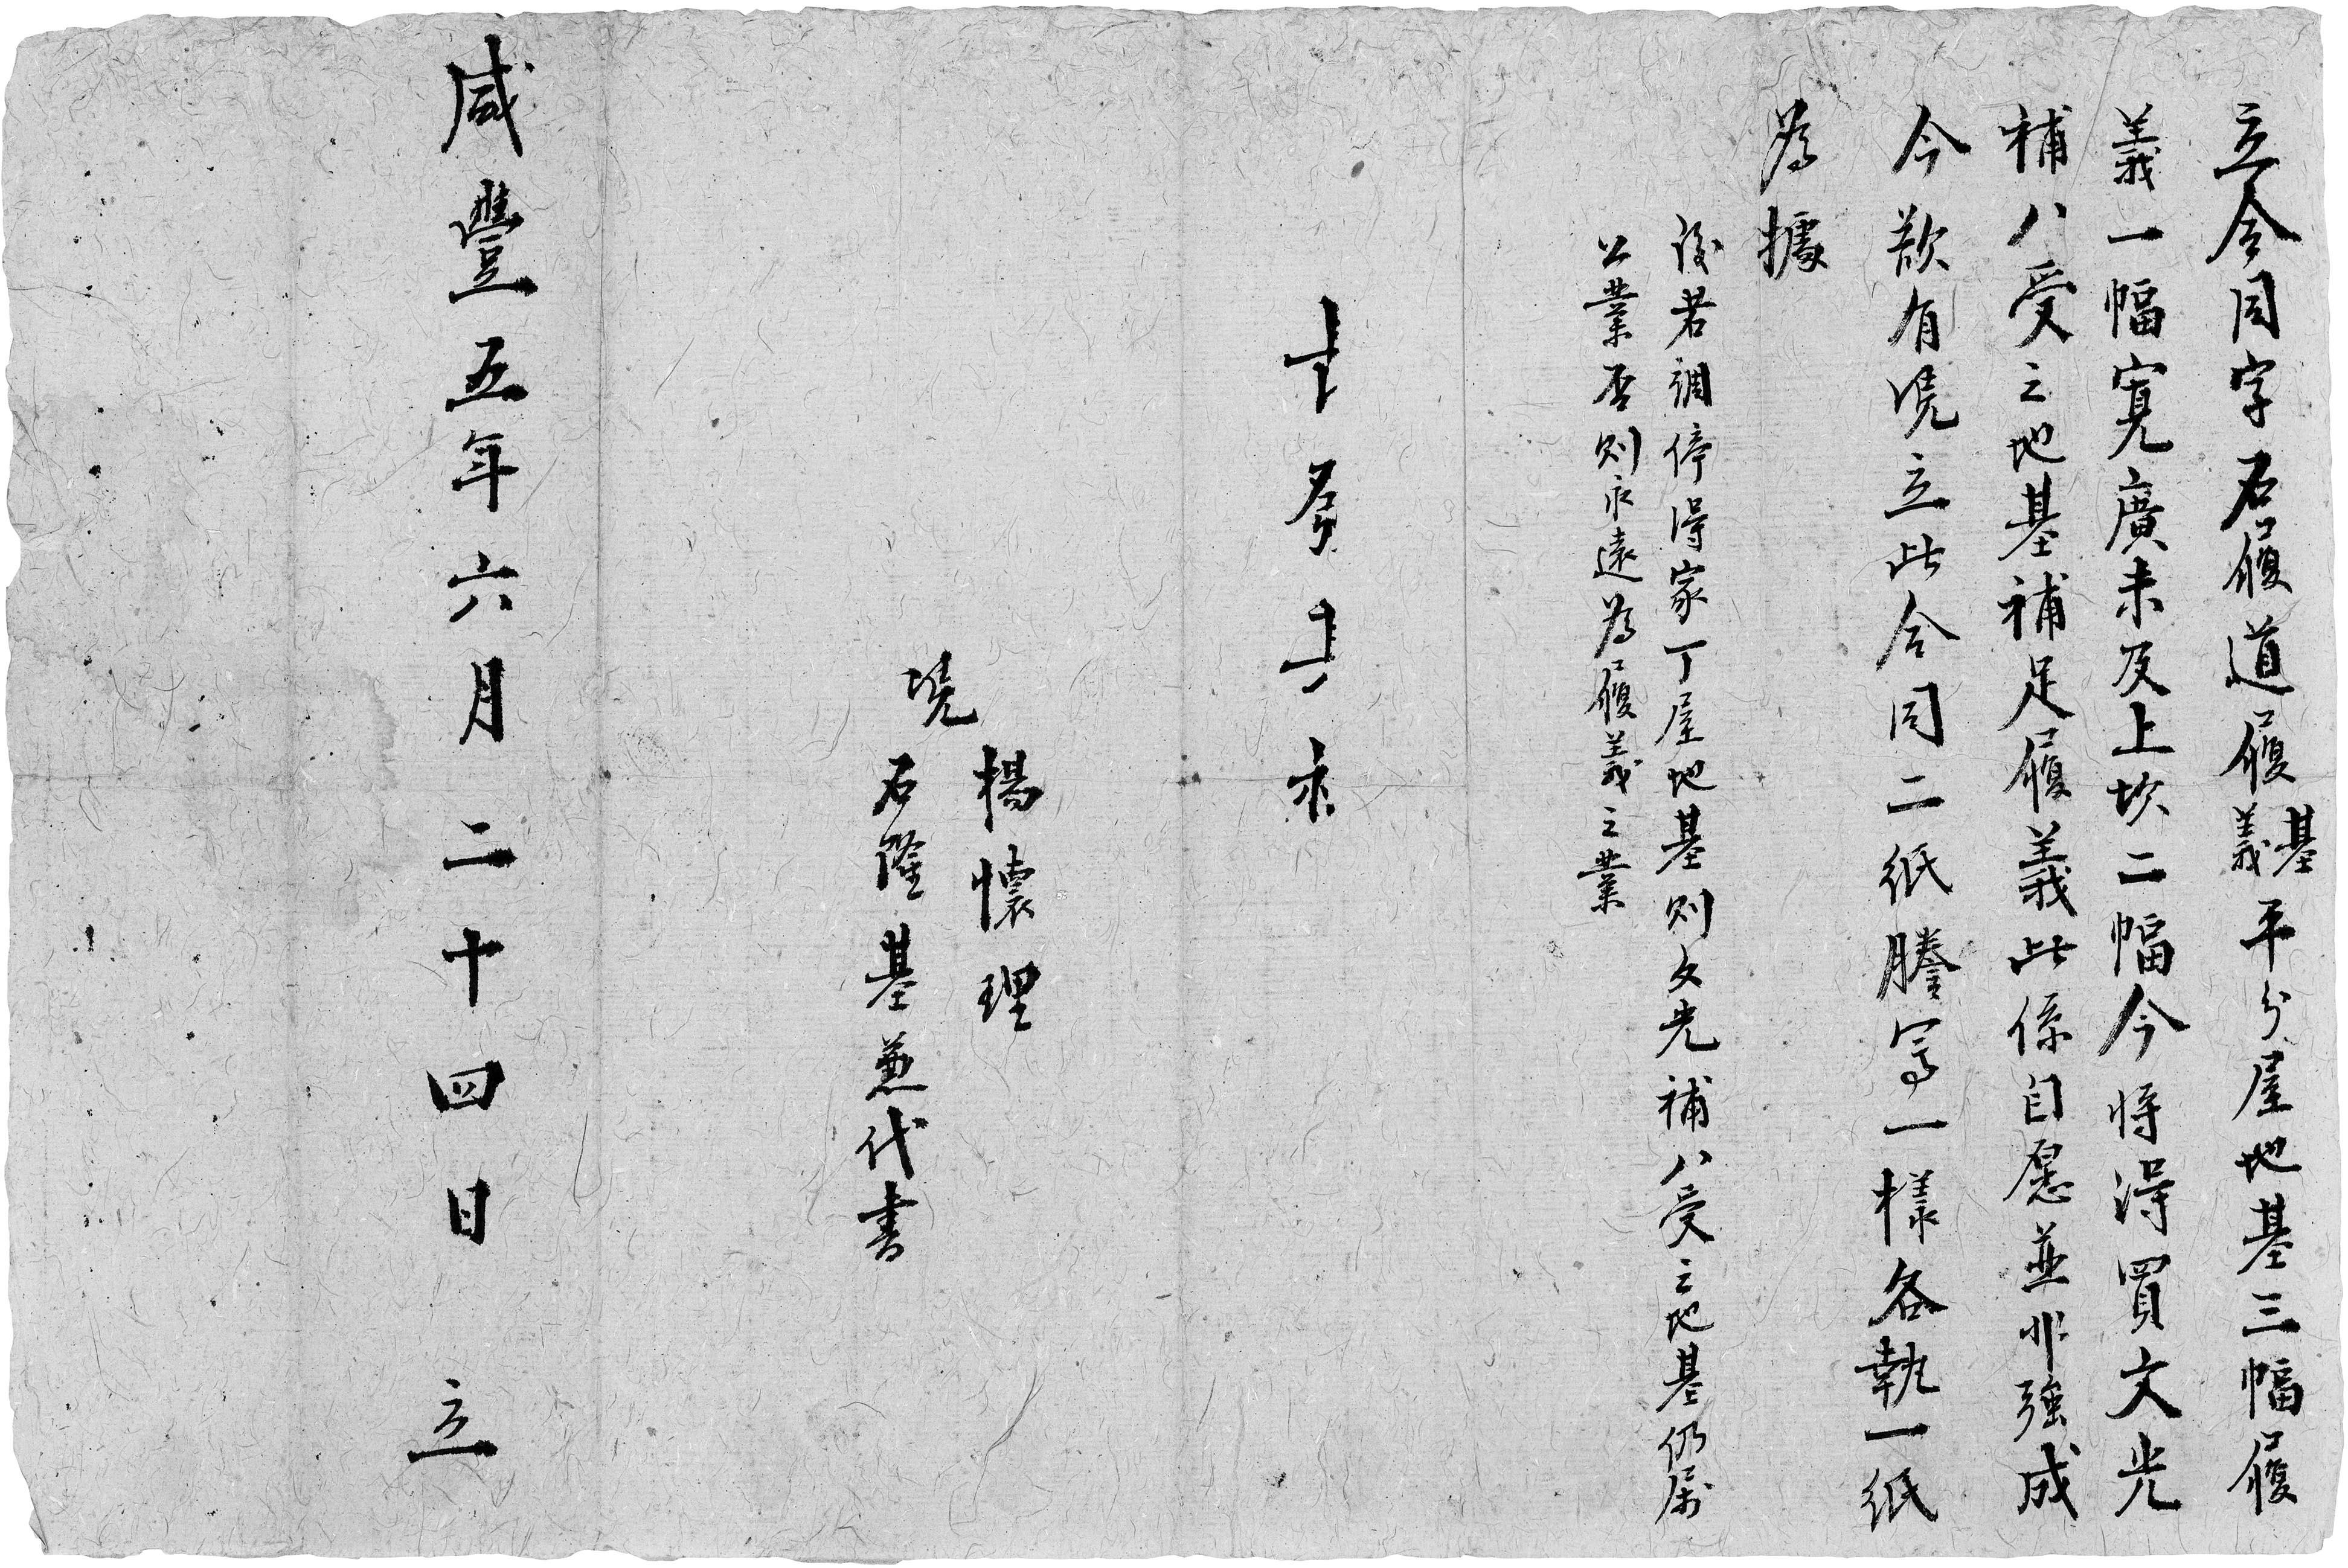 立合同字石履道履基義平分屋地基三幅履
義一幅寬廣未及上坎二幅今將得買文光
補八受之地基補足履義此係自愿並非強成
今欲有憑立此合同二紙謄寫一樣各執一紙
為據
後若調停得家丁屋地基則文光補八受之地基仍屬
公業否則永遠為履義之業
憑
楊懷理
石隆基兼代書
咸豐五年六月二十四日 立